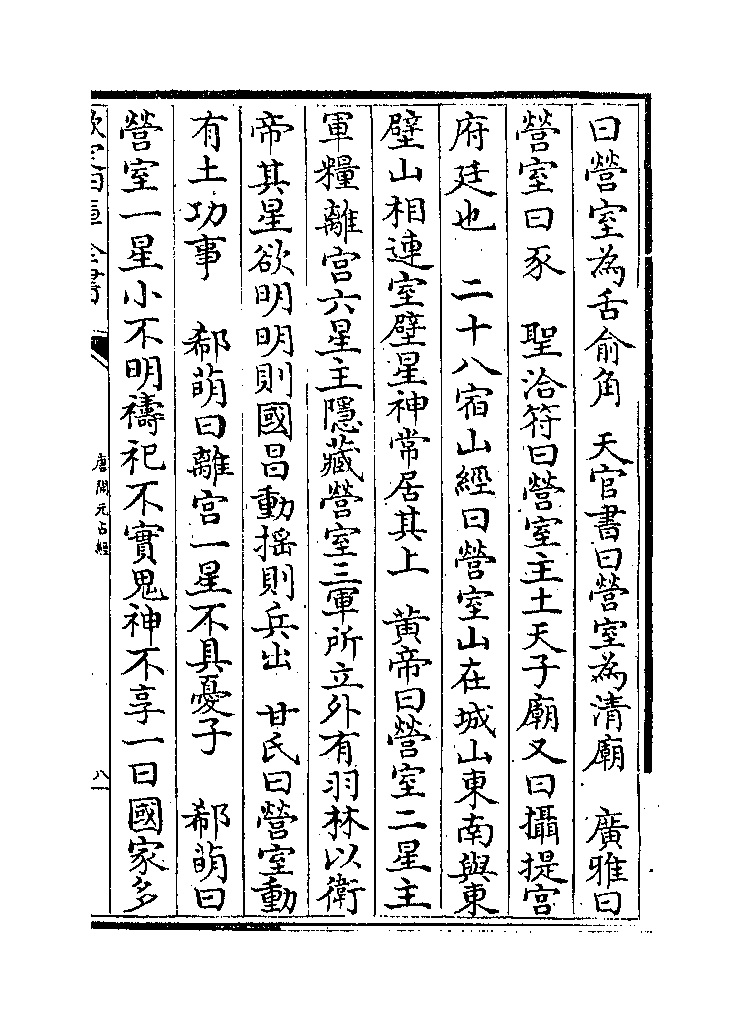 曰營室為舌俞角　天官書曰營室為清廟　廣雅曰
營室曰豕　聖洽符曰營室主土天子廟又曰攝提宮
府廷也　二十八宿山經曰營室山在城山東南與東
壁山相連室壁星神常居其上　黄帝曰營室二星主
軍糧離宫六星主隱藏營室三軍所立外有羽林以衛
帝其星欲明明則國昌動揺則兵出　甘氏曰營室動
有土功事　郗萌曰離宫一星不具憂子　郗萌曰
營室一星小不明禱祀不實鬼神不享一曰國家多
欽定四庫全書
唐開元占經
八